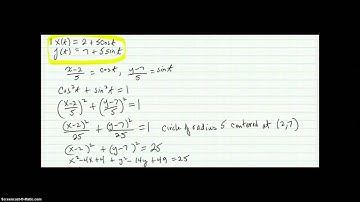 x(t) = 2 + 5cost
y(t) = 7 + 5sint
x-2/5 = cost, y-7/5 = sint
cos²t + sin²t = 1
(x-2/5)² + (y-7/5)² = 1
(x-2)²/25 + (y-7)²/25 = 1 circle of radius 5 centered at (2,7)
(x-2)² + (y-7)² = 25
x²-4x+4 + y²-14y+49 = 25
Screencast-O-Matic.com